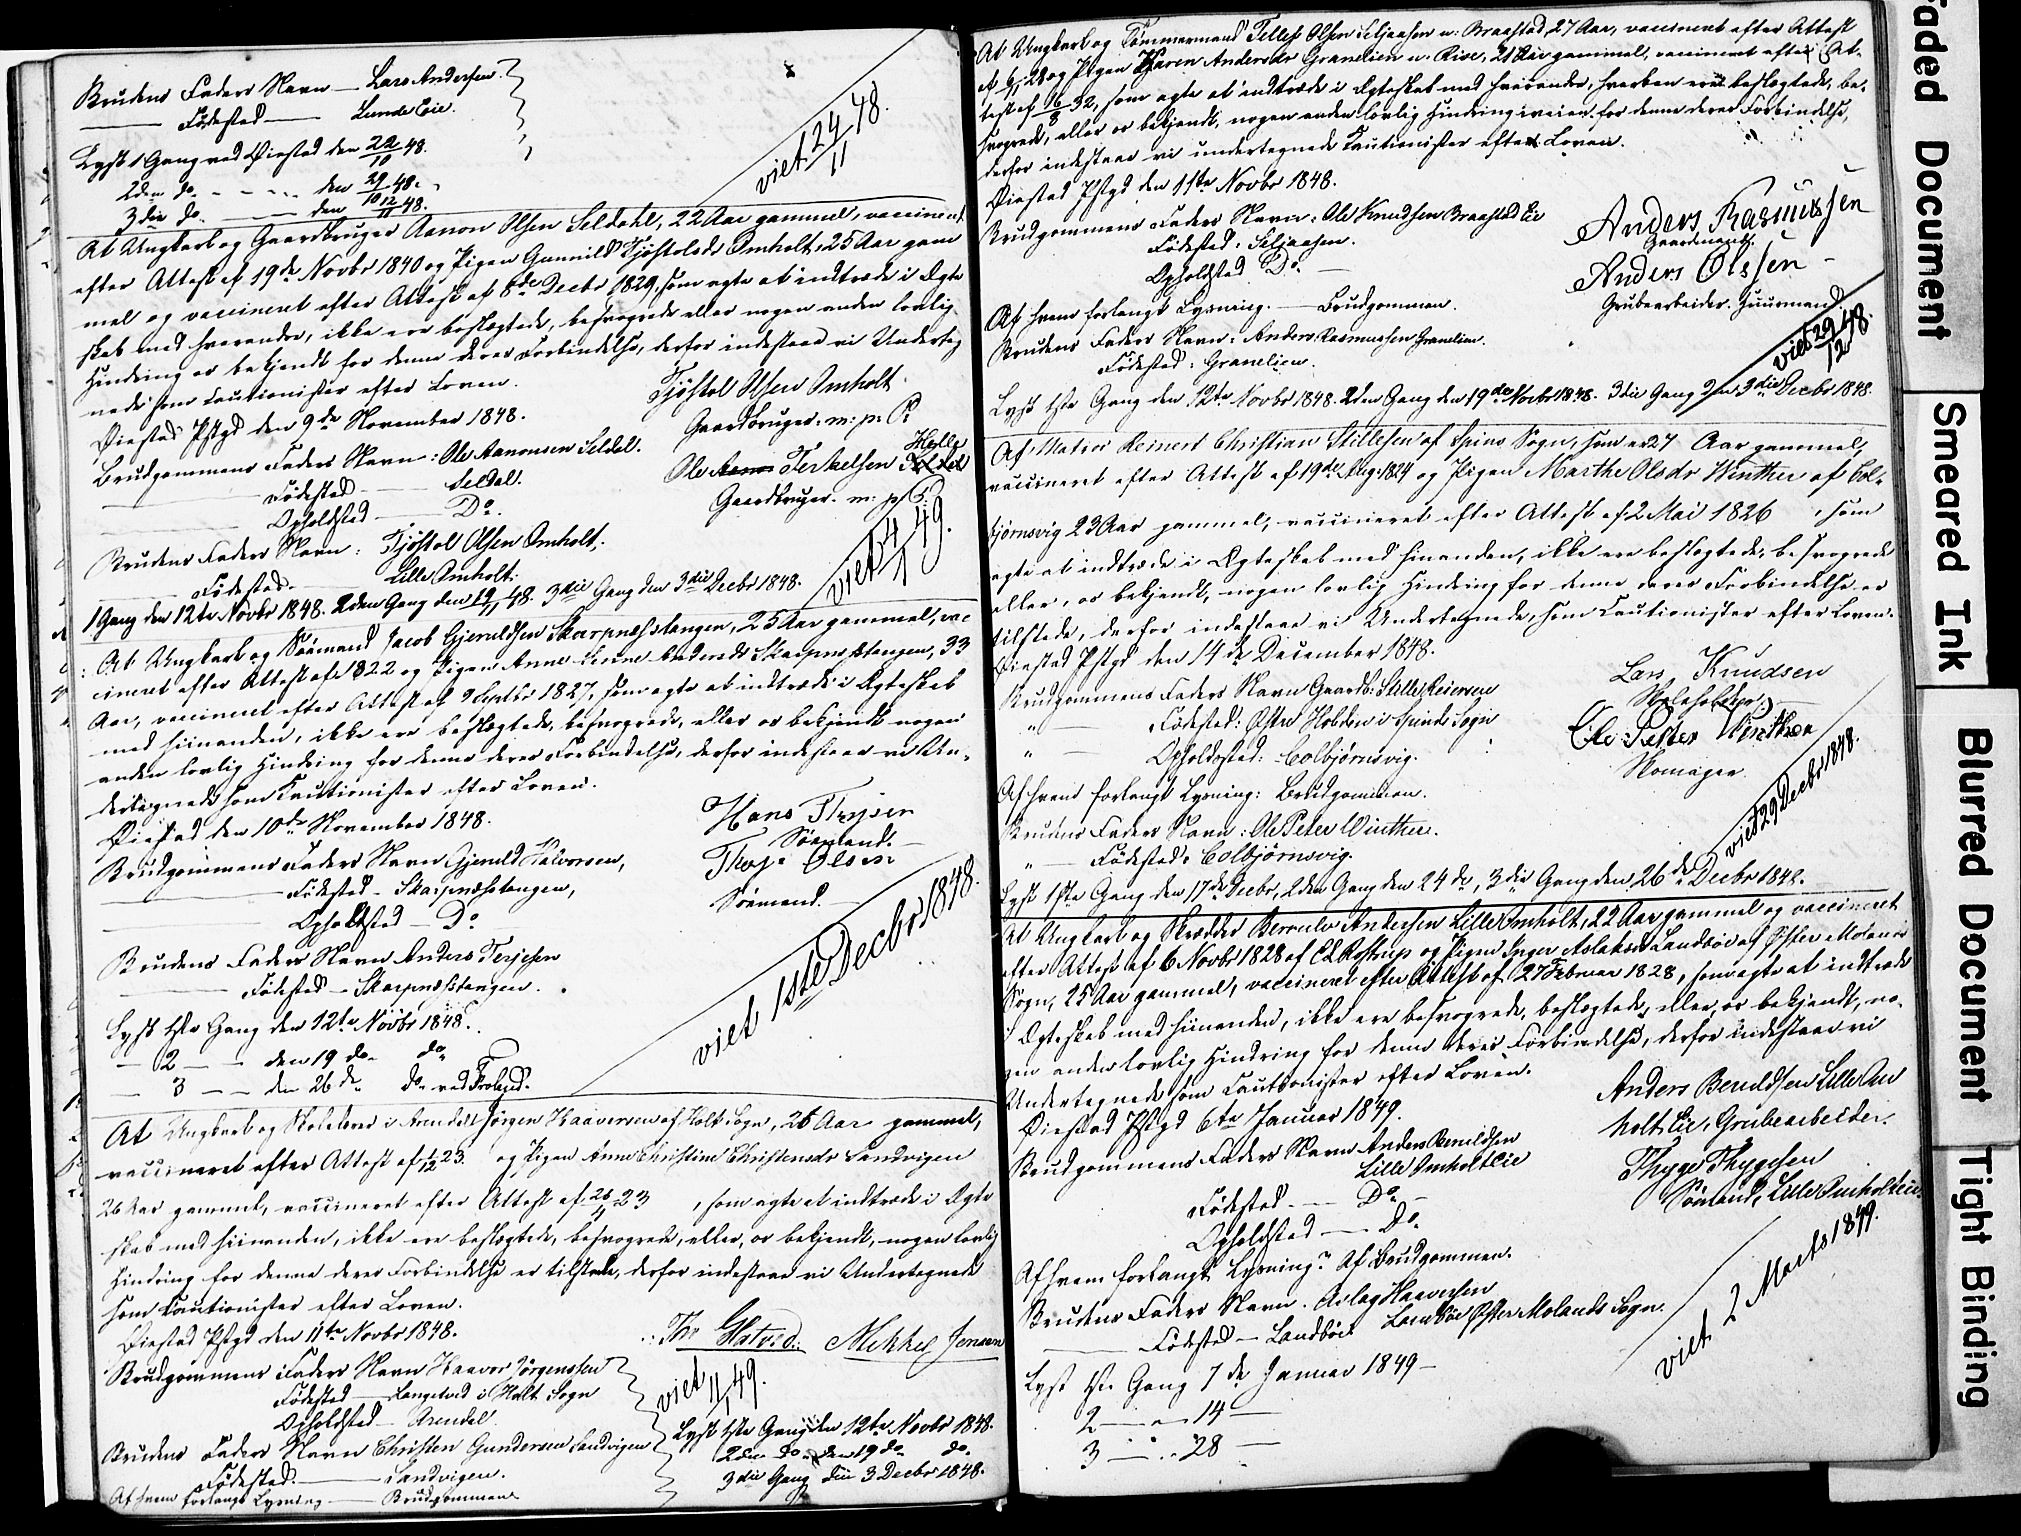 Brudens Faders Navn — Lars Andersen.
Fødested — Lunde Eie.
Lyst 1 Gang ved Øiestad den 22/10 48.
2den do. den 29/10 48.
3die do. den 12/11 48.
viet 24/11 48.
At Ungkarl og Gaardbruger Aanon Olsen Seldahl, 22 Aar gammel, vaccineret
efter Attest af 19de Novbr 1840 og Pigen Gunnild Tjøstolsdr Omholt, 25 Aar gam
mel og vaccineret efter Attest af 8de Decbr 1829, som agte at indtræde i Ægte
skab med hverandre, ikke ere beslægtede, besvogrede eller nogen anden lovlig
Hindring er bekjendt for denne deres Forbindelse, derfor indestaae vi Underteg
nede som Cautionister efter Loven.
Øiestad Pstgd den 9de November 1848.
Tjøstol Olsen Omholt.
Gaardbruger. m: p: P:
Brudgommens Faders Navn: Ole Aanonsen Seldal.
Ole Terkelsen Helle
Fødested — Seldal.
Gaardbruger. m: p: P:
Opholdsted — Do.
Brudens Faders Navn: Tjøstol Olsen Omholt.
Fødested — Lille Omholt.
viet 4/1 49.
1 Gang den 12te Novbr 1848. 2den Gang den 19/11 48. 3die Gang den 3die Decbr 1848.
At Ungkarl og Sømand Jacob Gjeruldsen Skarpnæsstangen, 25 Aar gammel, vac
cineret efter Attest af 1822 og Pigen Anne Andersdr Skarpnæsstangen, 33
Aar, vaccineret efter Attest af 9 Septbr 1827, som agte at indtræde i Ægteskab
med hinanden, ikke ere beslægtede, besvogrede, eller er bekjendt nogen
anden lovlig Hindring for denne deres Forbindelse, derfor indestaae vi Un-
dertegnede som Cautionister efter Loven.
Øiestad den 10de November 1848.
Hans Thysen
Sømand.
Brudgommens Faders Navn Gjeruld Halvorsen,
Olsen
Fødested — Skarpnæsstangen,
Sømand.
Opholdsted — Do
Brudens Faders Navn Anders Terjesen
Fødested — Skarpnæsstangen.
viet 1ste Decbr 1848.
Lyst 1ste Gang den 12te Novbr 1848.
2 — den 19 do. do.
3 — den 26 do. do. ved Froland.
At Ungkarl og Skolelærer i Arendal Jørgen Haaversen af Holt Sogn, 26 Aar gammel,
vaccineret efter Attest af 1/12 23. og Pigen Anne Christine Christensdr Sandvigen
26 Aar gammel, vaccineret efter Attest af 26/11 23, som agte at indtræde i Ægte
skab med hinanden, ikke ere beslægtede, besvogrede, eller, er bekjendt, nogen lovlig
Hindring for denne deres Forbindelse er tilstede, derfor indestaae vi Undertegnede
som Cautionister efter Loven.
Øiestad Pstgd den 11te Novbr 1848.
Mikkel Jensen
Brudgommens Faders Navn Haavor Jørgenssen
Fødested — Langetved i Holt Sogn
Opholdsted — Arendal.
viet 11/1 49.
Brudens Faders Navn Christen Gundersen Sandvigen
Fødested — Sandvigen.
Af hvem forlangt Lysning — Brudgommen
Lyst 1ste Gang den 12te Novbr 1848.
2den do. den 19 do. do.
3die Gang den 3 Decbr 1848.
At Ungkarl og Tømmermand Tellef Olsen Seljaasen u. Braastad, 27 Aar, vaccineret efter Attest
af 28 og Pigen Karen Andersdr Granelien u. Rise, 21 Aar gammel, vaccineret efter At-
test af 16/8 32, som agte at indtræde i Ægteskab med hverandre, hverken ere beslægtede, be-
svogrede, eller er bekjendt, nogen anden lovlig Hindring i veien for denne deres Forbindelse,
derfor indestaae vi undertegnede Cautionister efter Loven.
Øiestad Pstgd den 11te Novbr 1848.
Brudgommens Faders Navn: Ole Knudsen Braastad Eie
Anders Rasmussen
Gaardmand.
Fødested: Seljaasen.
Anders Olssen
Opholdsted Do.
Grubearbeider. Huusmand
Af hvem forlangt Lysning. — Brudgommen.
Brudens Faders Navn: Anders Rasmussen Granelien.
Fødested: Granelien.
viet 29/12 48.
Lyst 1ste Gang den 12te Novbr 1848. 2den Gang den 19de Novbr 1848. 3die Gang den 3die Decbr 1848.
At Matros Reinert Christian Stillesen af Spinds Sogn, som er 27 Aar gammel,
vaccineret efter Attest af 19de Aug. 1824 og Pigen Marthe Olsdr Winther af Col-
bjørnsvig 23 Aar gammel, vaccineret efter Attest af 2 Mai 1826, som
agte at indtræde i Ægteskab med hinanden, ikke ere beslægtede, besvogrede
eller, er bekjendt, nogen lovlig Hindring for denne deres Forbindelse er
tilstede, derfor indestaae vi Undertegnede, som Cautionister efter Loven.
Øiestad Pstgd den 14de December 1848.
Lars Knudsen
Skoleholder
Brudgommens Faders Navn Gaardb: Stille Reiersen
" Fødested: Østre Hobden i Spinds Sogn
Ole Petter Winther
" Opholdssted: Colbjørnsvig.
Skomager
Af hvem forlangt Lysning: Brudgommen.
Brudens Faders Navn: Ole Peter Winther.
" Fødested: Colbjørnsvig.
viet 29 Decbr 1848.
Lyst 1ste Gang den 17de Decbr, 2den Gang den 24de, 3die Gang den 26de Decbr 1848.
At Ungkarl og Skrædder Beroulv Andersen Lille Omholt, 22 Aar gammel og vaccineret
efter Attest af 6 Novbr 1828 af Rostrup og Pigen Inger Aslaksdr Landbøe af Øster Molands
Sogn, 25 Aar gammel, vaccineret efter Attest af 27 Februar 1828, som agte at indtræde
i Ægteskab med hinanden, ikke ere besvogrede, beslægtede, eller, er bekjendt, no-
gen anden lovlig Hindring for denne deres Forbindelse, derfor indestaae vi
Undertegnede som Cautionister efter Loven.
Øiestad Pstgd 6te Januar 1849.
Anders Beruldsen Lille Om
holt Eie, Grubearbeider.
Brudgommens Faders Navn Anders Beruldsen
Lille Omholt Eie
Thyge Thygesen
Sømand, Lille Omholt Eie
Fødested — Do
Opholdsted — Do.
Af hvem forlangt Lysning? Af Brudgommen.
Brudens Faders Navn. Aslag Haaversen
Fødested — Landbøe Landbøe Øster Molands Sogn.
viet 2 Marts 1849.
Lyst 1ste Gang 7de Januar 1849 —
2 — " — 14 —
3 — " — 28 —
Faded Document
Smeared Ink
Blurred Document
Tight Binding